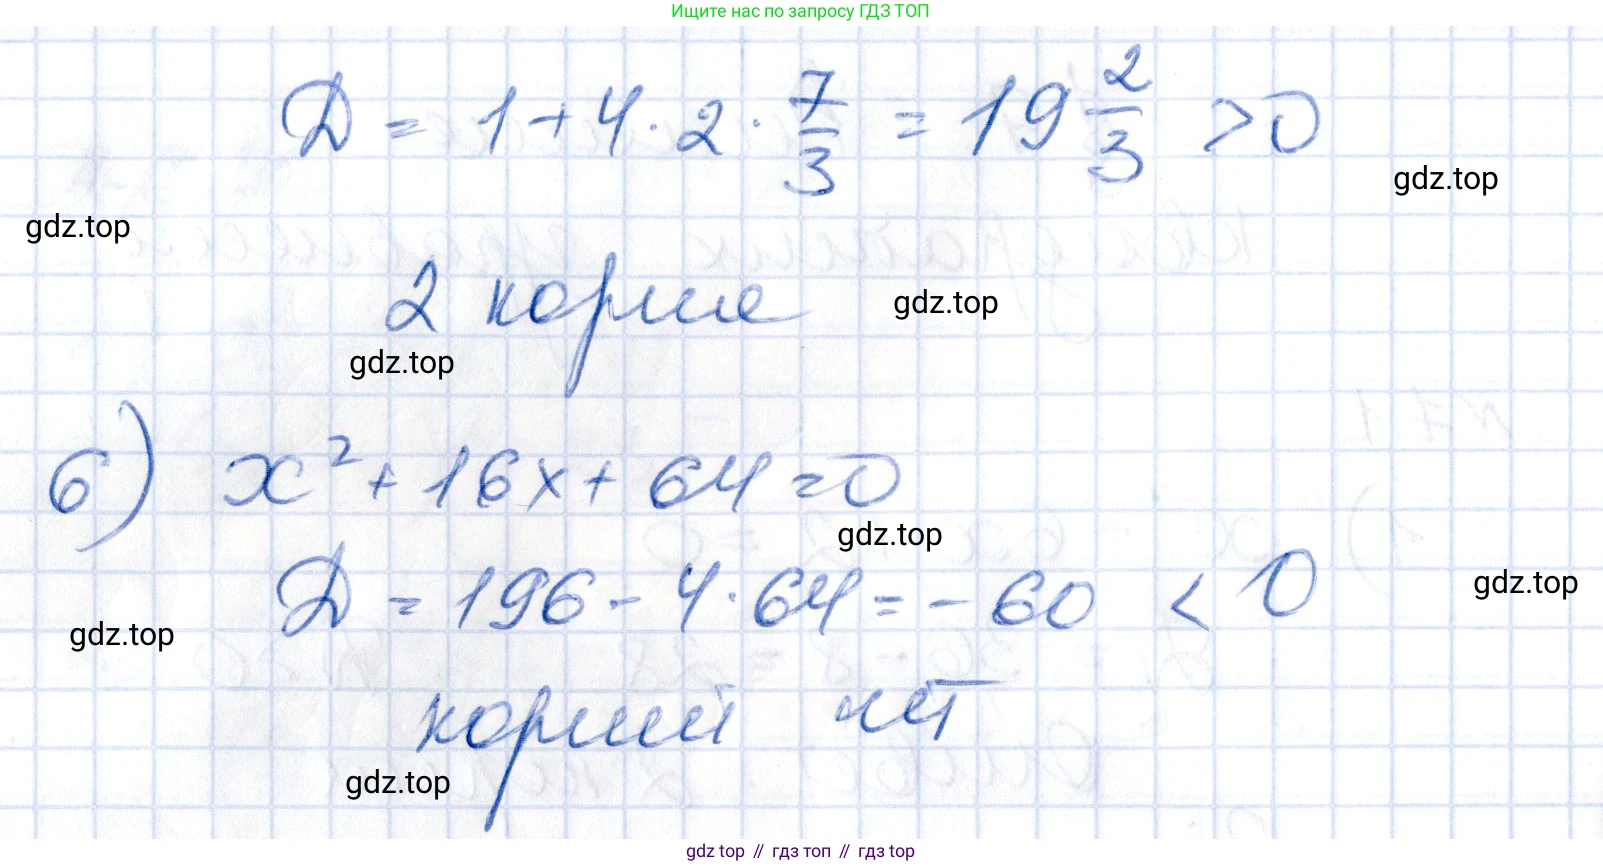 Ищите нас по запросу ГДЗ ТОП
D = 1 + 4 · 2 · 7/3 = 19 2/3 > 0
gdz.top
gdz.top
2 корня
gdz.top
gdz.top
6) x² + 16x + 64 = 0
gdz.top
D = 196 - 4 · 64 = - 60 < 0
gdz.top
gdz.top
корней нет
gdz.top
gdz top // гдз топ // гдз top